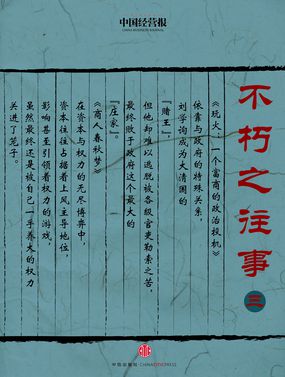 中国经营报
CHINA BUSINESS JOURNAL
不朽之往事
三
《玩火——一个富商的政治投机》
依靠与政府的特殊关系，
刘学询成为大清国的
“赌王”，
但他却难以逃脱被各级官吏勒索之苦，
最终败于政府这个最大的
“庄家”。
《商人春秋梦》
在资本与权力的无尽博弈中，
资本往往占据着上风主导地位，
影响甚至引领着权力的游戏，
虽然最终还是被自己一手养大的权力
关进了笼子。
中信出版社·CHINACITICPRESS